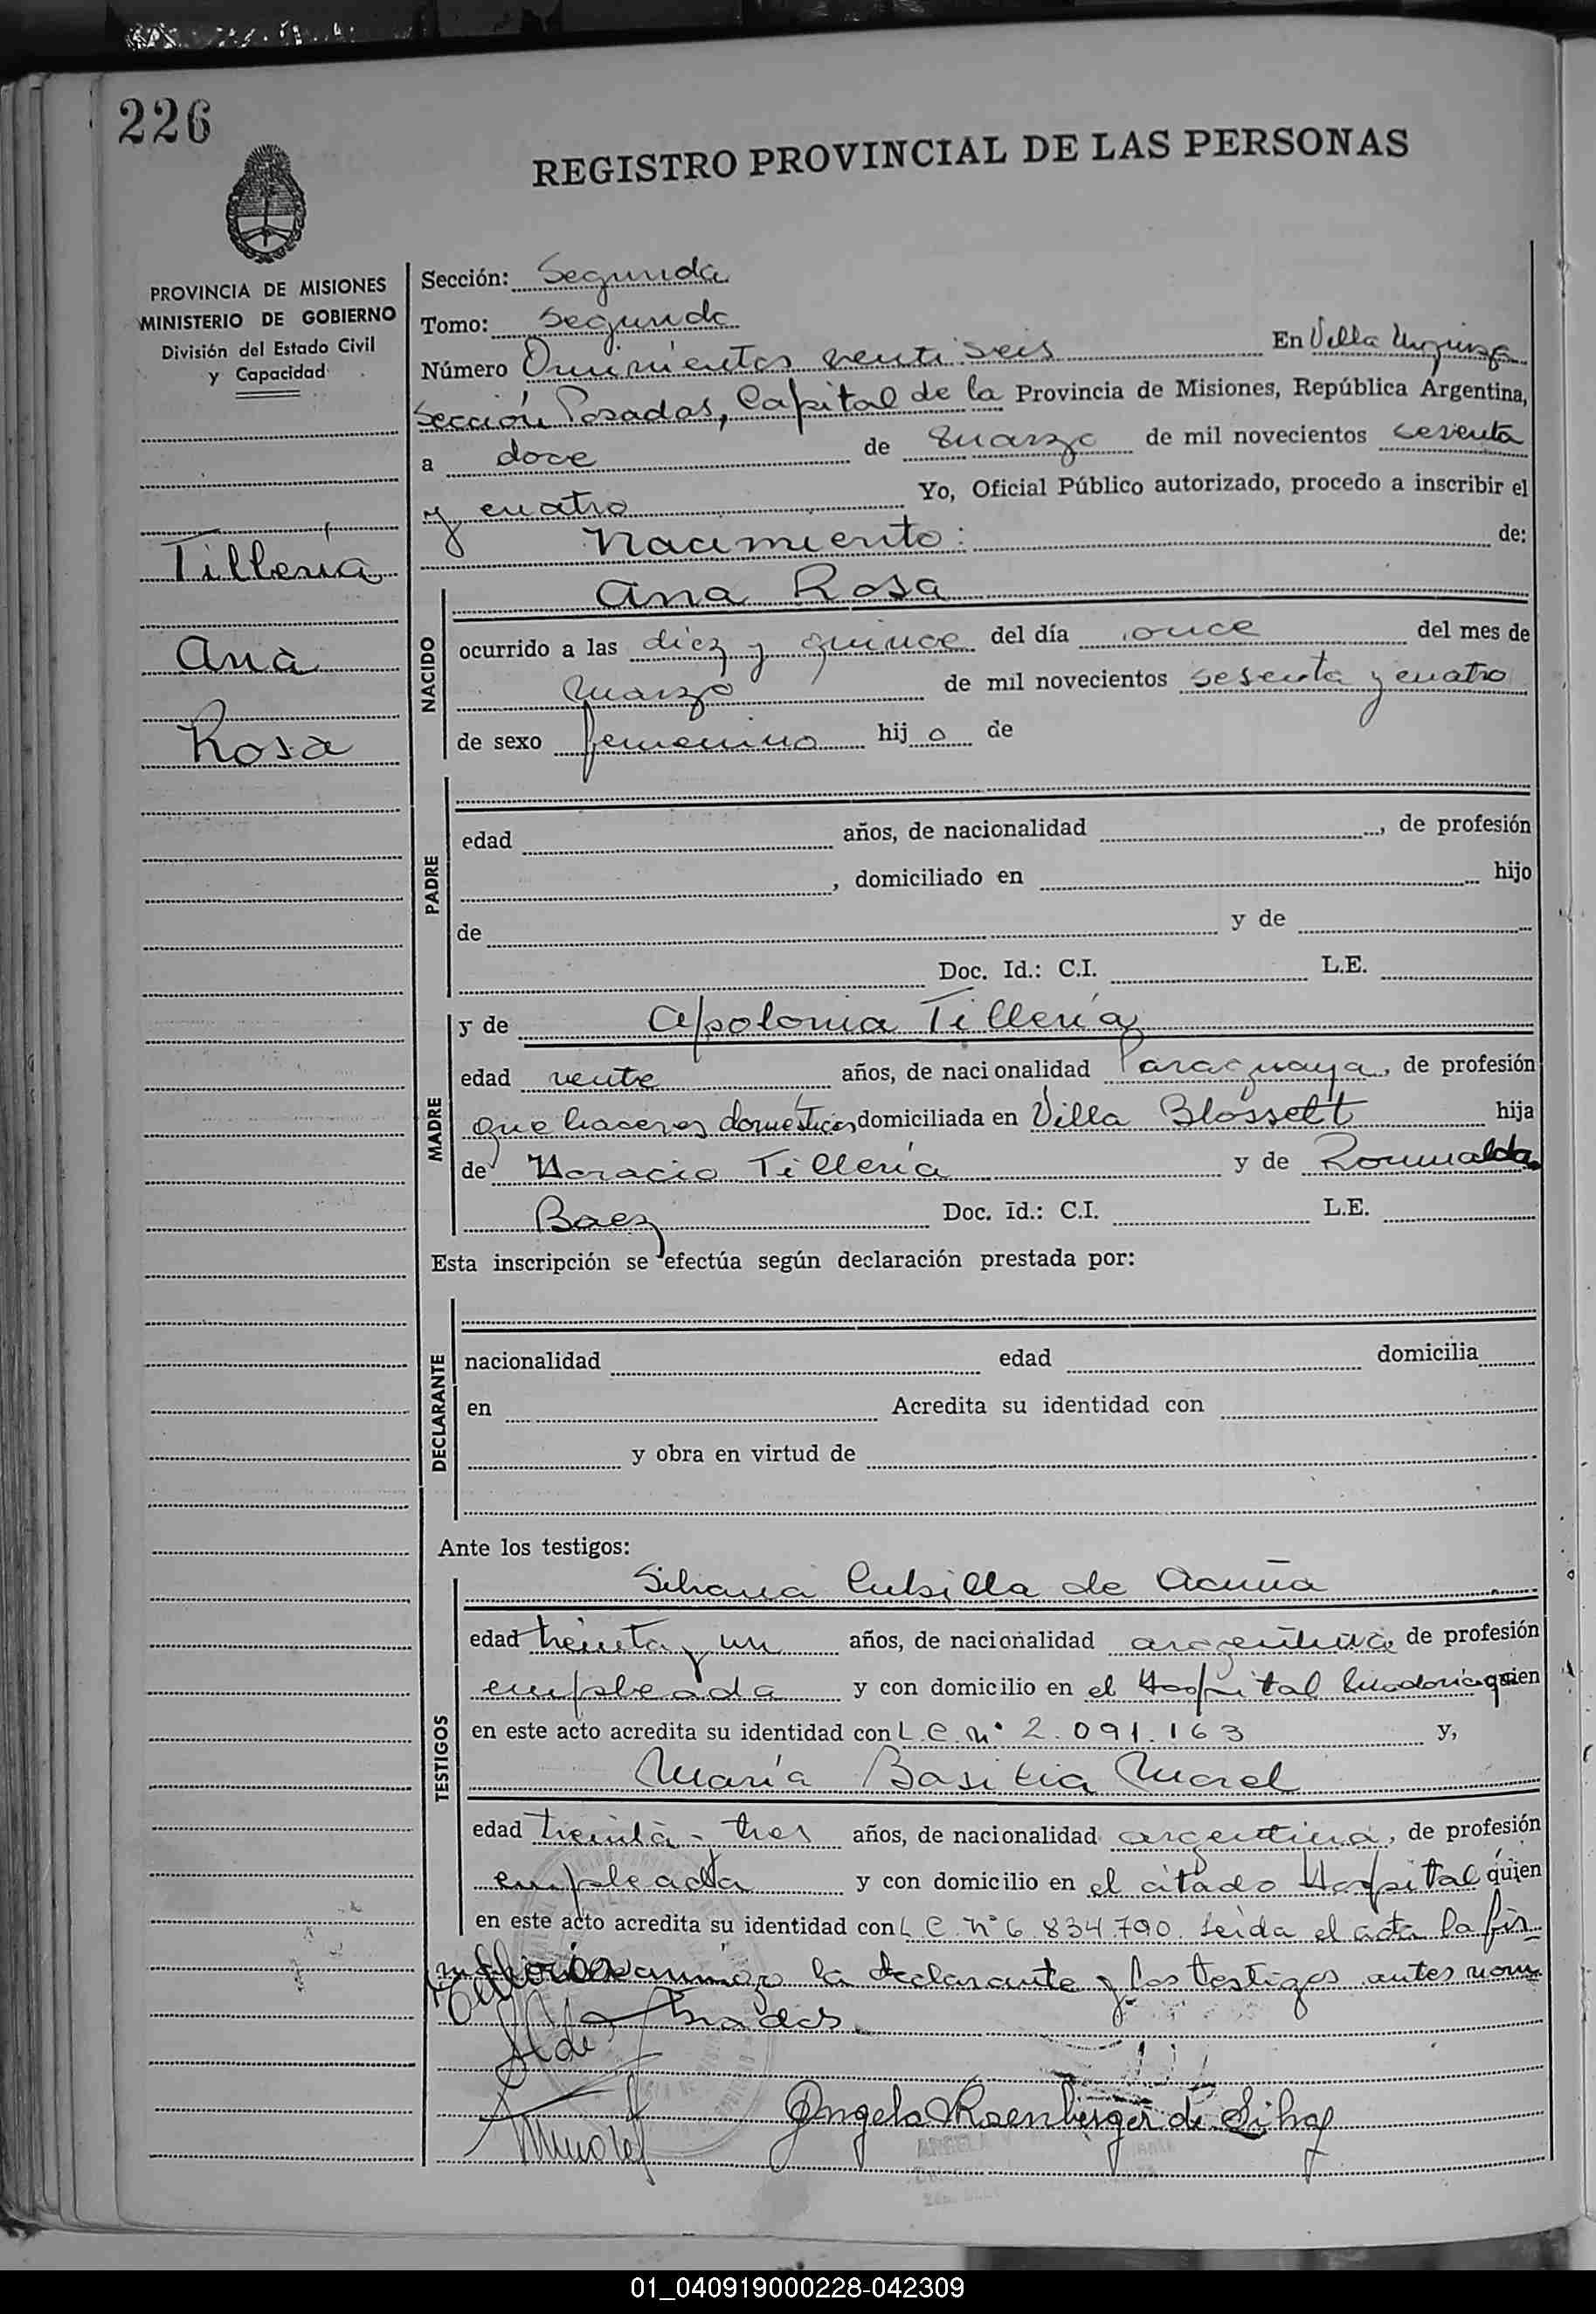 226
REGISTRO PROVINCIAL DE LAS PERSONAS
PROVINCIA DE MISIONES
MINISTERIO DE GOBIERNO
División del Estado Civil
y Capacidad
Tillería
Ana
Rosa
Sección: Segunda
Tomo: Segundo
Número Quinientos veinti seis En Villa Urquiza
Sección Posadas, Capital de la Provincia de Misiones, República Argentina,
a doce de marzo de mil novecientos sesenta
y cuatro Yo, Oficial Público autorizado, procedo a inscribir el
Nacimiento: de:
NACIDO
Ana Rosa
ocurrido a las diez y quince del día once del mes de
marzo de mil novecientos sesenta y cuatro
de sexo femenino hij a de
PADRE
edad años, de nacionalidad , de profesión
, domiciliado en hijo
de y de
Doc. Id.: C.I. L.E.
MADRE
y de Apolonia Tillería
edad veinte años, de nacionalidad Paraguaya, de profesión
que haceres domésticos domiciliada en Villa Blossett hija
de Horacio Tillería y de Romualda
Baez Doc. Id.: C.I. L.E.
Esta inscripción se efectúa según declaración prestada por:
DECLARANTE
nacionalidad edad domicilia
en Acredita su identidad con
y obra en virtud de
Ante los testigos:
TESTIGOS
Silvana Cubilla de Acuña
edad treinta y un años, de nacionalidad argentina de profesión
empleada y con domicilio en el Hospital Madariaga quien
en este acto acredita su identidad con L.C. nº 2.091.163 y,
María Basilia Morel
edad treinta - tres años, de nacionalidad argentina, de profesión
empleada y con domicilio en el citado Hospital quien
en este acto acredita su identidad con L C. nº 6.834.790. Leida el acta la fir-
la declarante y los testigos antes nom
brados.
Angela Rosenberger de
01_040919000228-042309